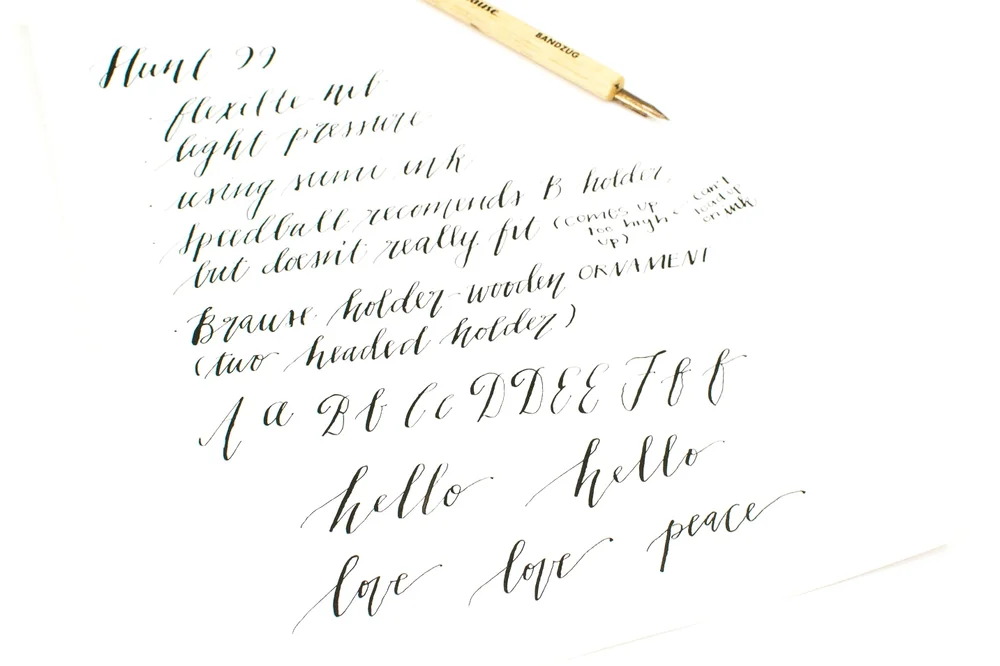 Brause
BANDZUG
Hunt 99
flexible nib
light pressure
using sumi ink
Speedball recomends B holder,
but doesn't really fit (comes up
too high
up)
can't
load up
on ink
Brause holder-wooden ORNAMENT
(two headed holder)
A a B b C c D D E E F f f
hello hello
love love peace